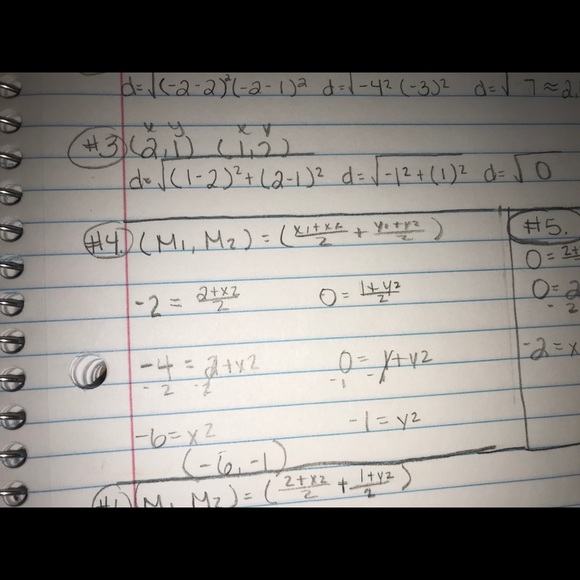 d=√(-2-2)²(-2-1)² d=√-4²(-3)² d=√ 7≈2.
x y x y
#3 (2,1) (1,2)
d=√(1-2)²+(2-1)² d=√-1²+(1)² d=√0
#4. (M1, M2) = (x1+x2/2 + y1+y2/2)
-2 = 2+x2/2 0 = 1+y2/2
-4 = 2+x2 0 = 1+y2
-2 -2 -1 -
-6 = x2 -1 = y2
(-6,-1)
#5.
0=2+
0=2
-2
-2=x
(M1, M2) = (2+x2/2 + 1+y2/2)